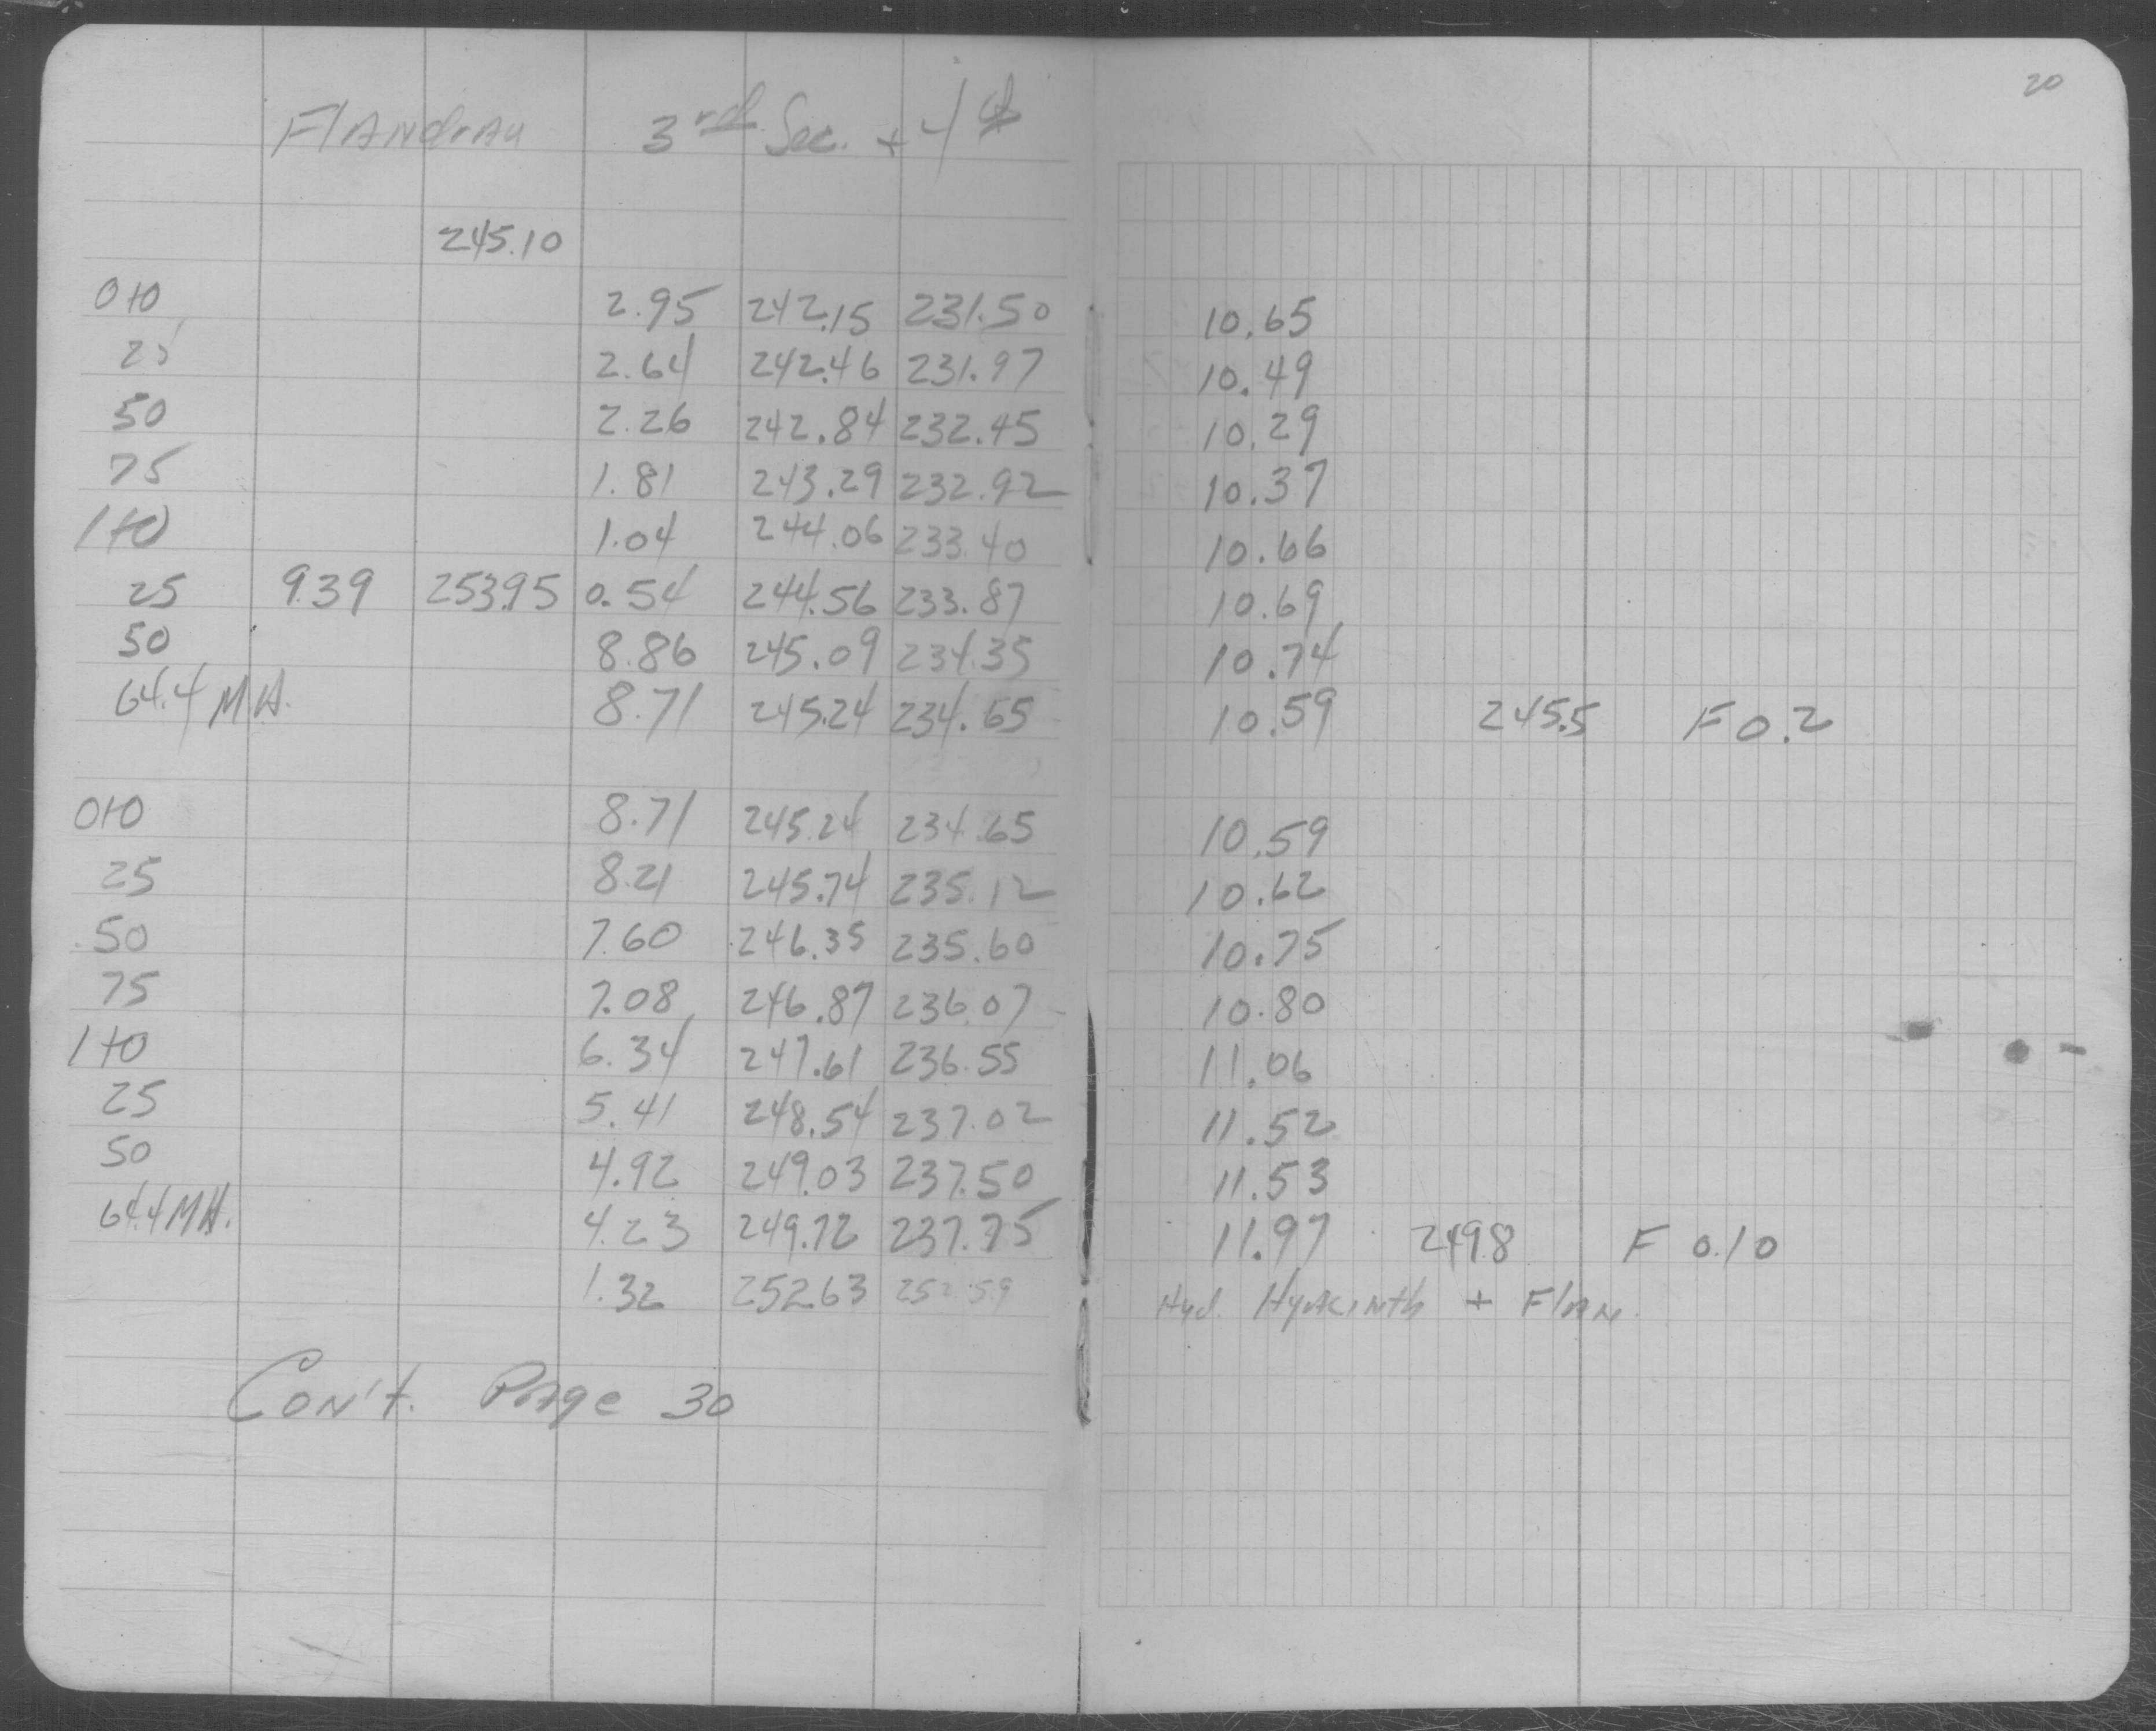 20
Flandrau 3rd Sec. + 4th
245.10
0+0 2.95 242.15 231.50 10.65
25 2.64 242.46 231.97 10.49
50 2.26 242.84 232.45 10.29
75 1.81 243.29 232.92 10.37
1+0 1.04 244.06 233.40 10.66
25 9.39 253.95 0.54 244.56 233.87 10.69
50 8.86 245.09 234.35 10.74
64.4 M.H. 8.71 245.24 234.65 10.59 245.5 F 0.2
0+0 8.71 245.24 234.65 10.59
25 8.21 245.74 235.12 10.62
50 7.60 246.35 235.60 10.75
75 7.08 246.87 236.07 10.80
1+0 6.34 247.61 236.55 11.06
25 5.41 248.54 237.02 11.52
50 4.92 249.03 237.50 11.53
64.4 M.H. 4.23 249.72 237.75 11.97 249.8 F 0.10
1.32 252.63 252.59 Hyd. Hyacinth + Flan.
Con't. Page 30